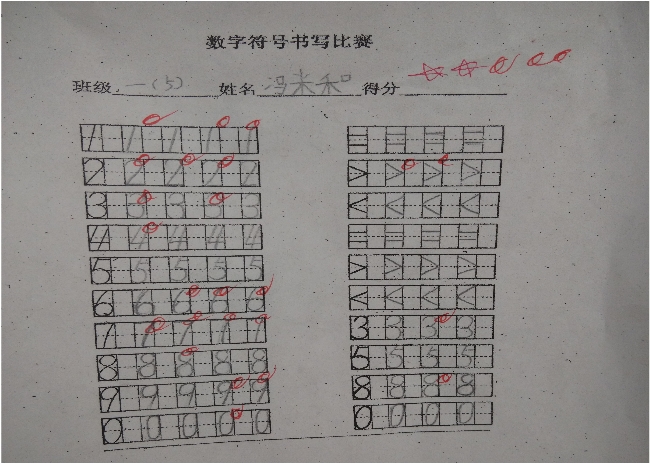 数字符号书写比赛
班级 一(5) 姓名 冯米和 得分
1 1 1 1 1 = = = =
2 2 2 2 2 > > > >
3 3 3 3 3 < < < <
4 4 4 4 4 = = = =
5 5 5 5 5 > > > >
6 6 6 6 6 < < < <
7 7 7 7 7 3 3 3 3
8 8 8 8 8 5 5 5 5
9 9 9 9 9 8 8 8 8
0 0 0 0 0 0 0 0 0